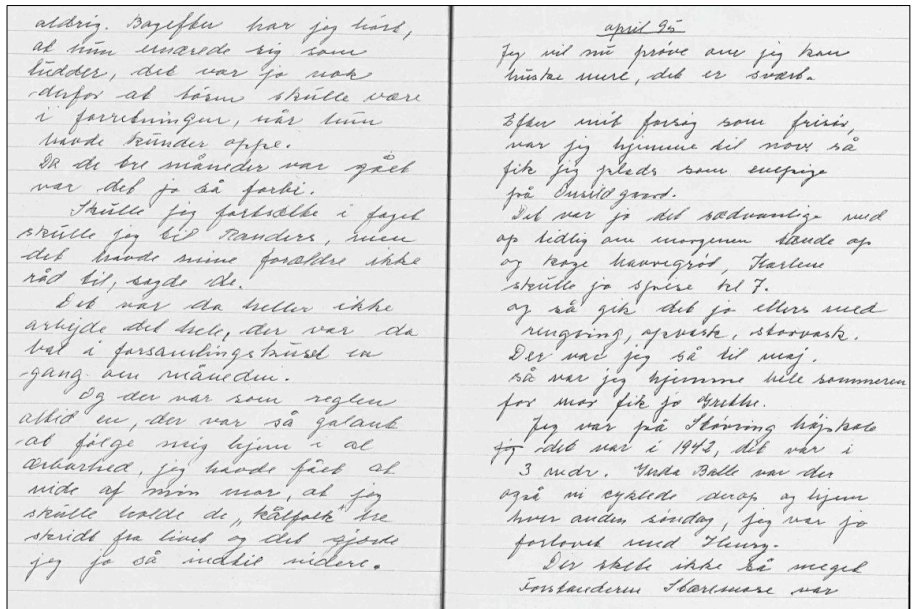 aldrig. Bagefter har jeg hørt,
at hun ernærede sig som
ludder, det var jo nok
derfor at børn skulle være
i forretningen, når hun
havde kunder oppe.
Da de tre måneder var gået
var det jo så forbi.
Skulle jeg fortsætte i faget
skulle jeg til Randers, men
det havde mine forældre ikke
råd til, sagde de.
Det var da heller ikke
arbejde det hele, der var da
bal i forsamlingshuset en
gang om måneden.
Og der var som reglen
altid en, der var så galant
at følge mig hjem i al
ærbarhed, jeg havde fået at
vide af min mor, at jeg
skulle holde de "kålfolk" tre
skridt fra livet og det gjorde
jeg jo så indtil videre.
april 95
Jeg vil nu prøve om jeg kan
huske mere, det er svært.
Efter mit forsøg som frisør,
var jeg hjemme til nov. så
fik jeg plads som enepige
på Onsild gaard.
Det var jo det sædvanlige med
op tidlig om morgenen tænde op
og koge havregrød, Karlene
skulle jo spise kl 7.
og så gik det jo ellers med
rengøring, opvask, storvask.
Der var jeg så til maj.
så var jeg hjemme hele sommeren
for mor fik jo Grethe.
Jeg var på Støvring højskole
jeg det var i 1942, det var i
3 mdr. Gerda Balle var der
også vi cyklede derop og hjem
hver anden søndag, jeg var jo
forlovet med Henry.
Der skete ikke så meget
Forstanderen var